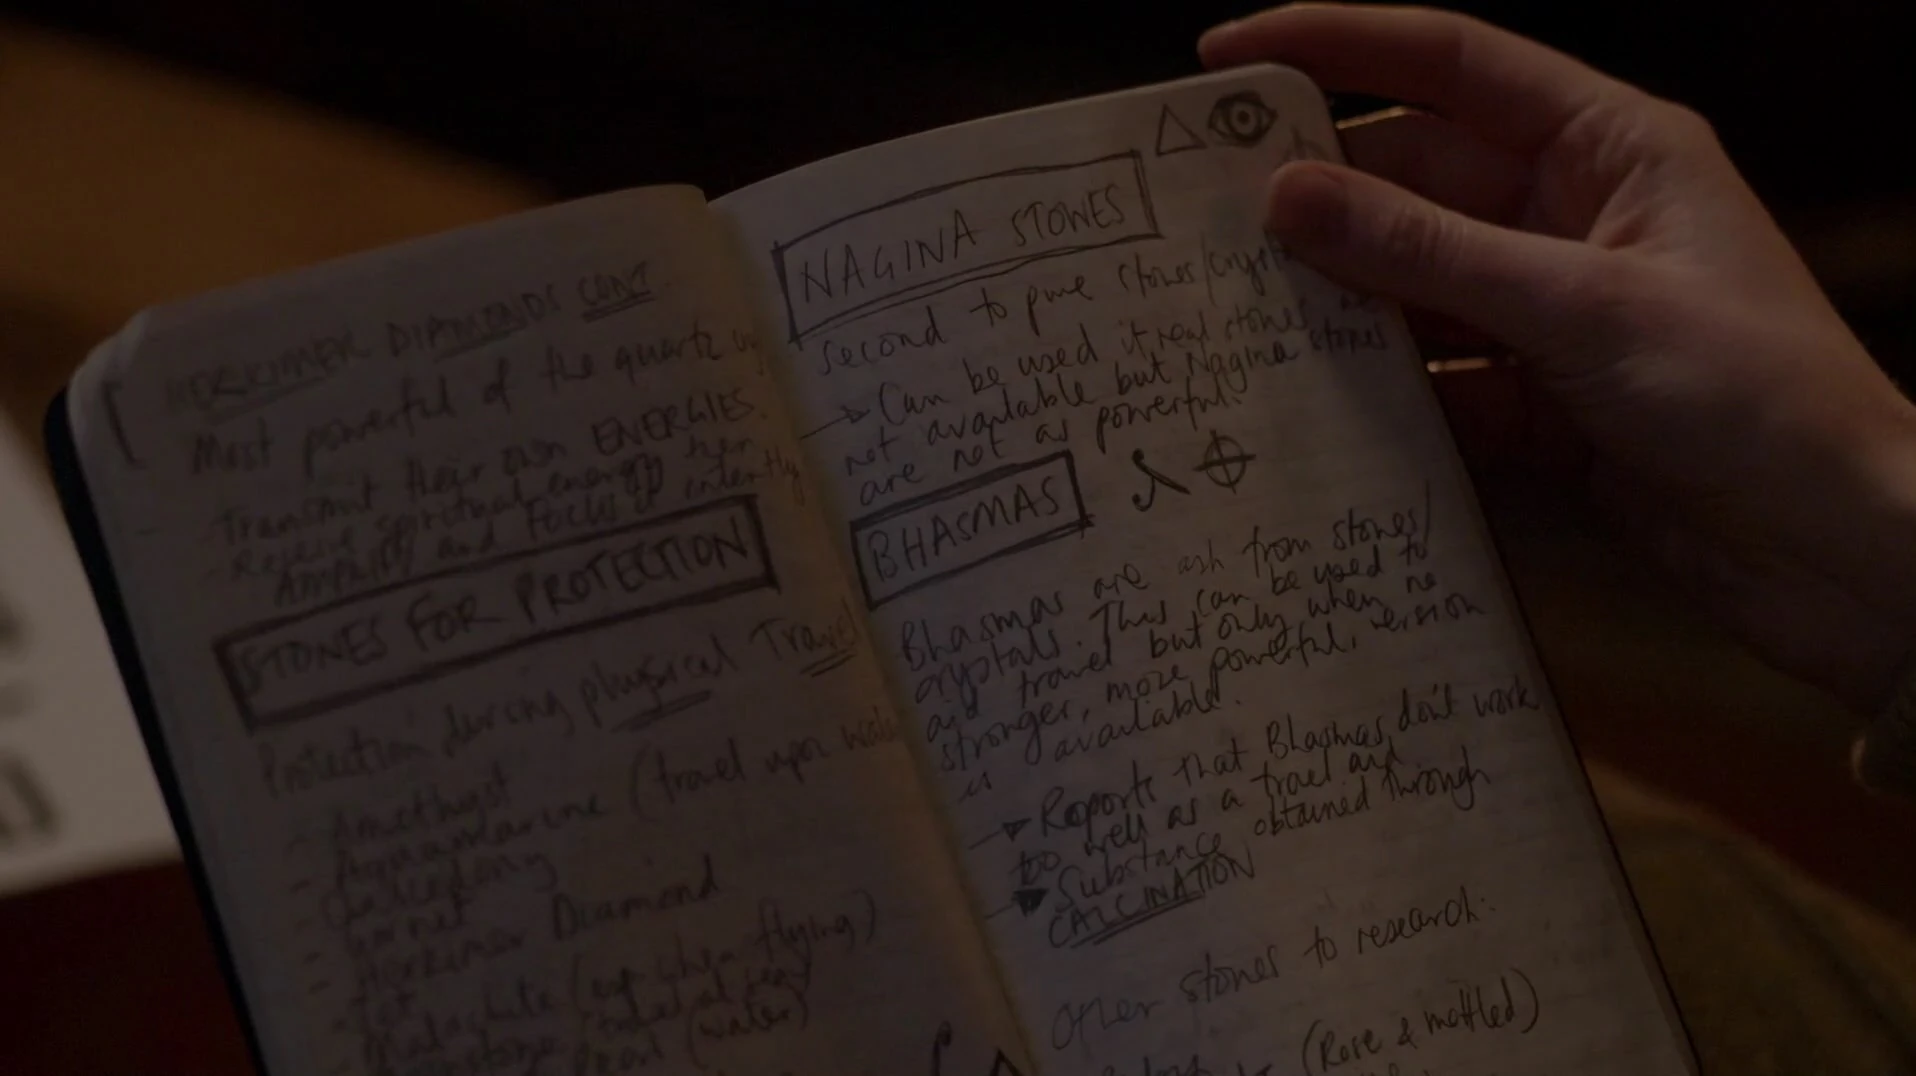 HERKIMER DIAMONDS CONT.
Most powerful of the quartz
Transmit their own ENERGIES.
Receive spiritual energy, then
AMPLIFY and FOCUS it intently
STONES FOR PROTECTION
Protection during physical Travel
- Amethyst
- Aquamarine (travel upon
- Chalcedony
- Garnet
- Herkimer Diamond
- Jet
- Malachite (esp when flying)
- Moonstone (travel at sea)
- Pearl (water)
NAGINA STONES
Second to pure stones/
→ Can be used if real stones
not available but Nagina stones
are not as powerful.
BHASMAS
Bhasmas are ash from stones/
crystals. This can be used to
aid travel but only when no
stronger, more powerful, version
is available.
→ Reports that Bhasmas don't work
too well as a travel aid
→ Substance obtained through
CALCINATION
Other stones to research:
(Rose & mottled)